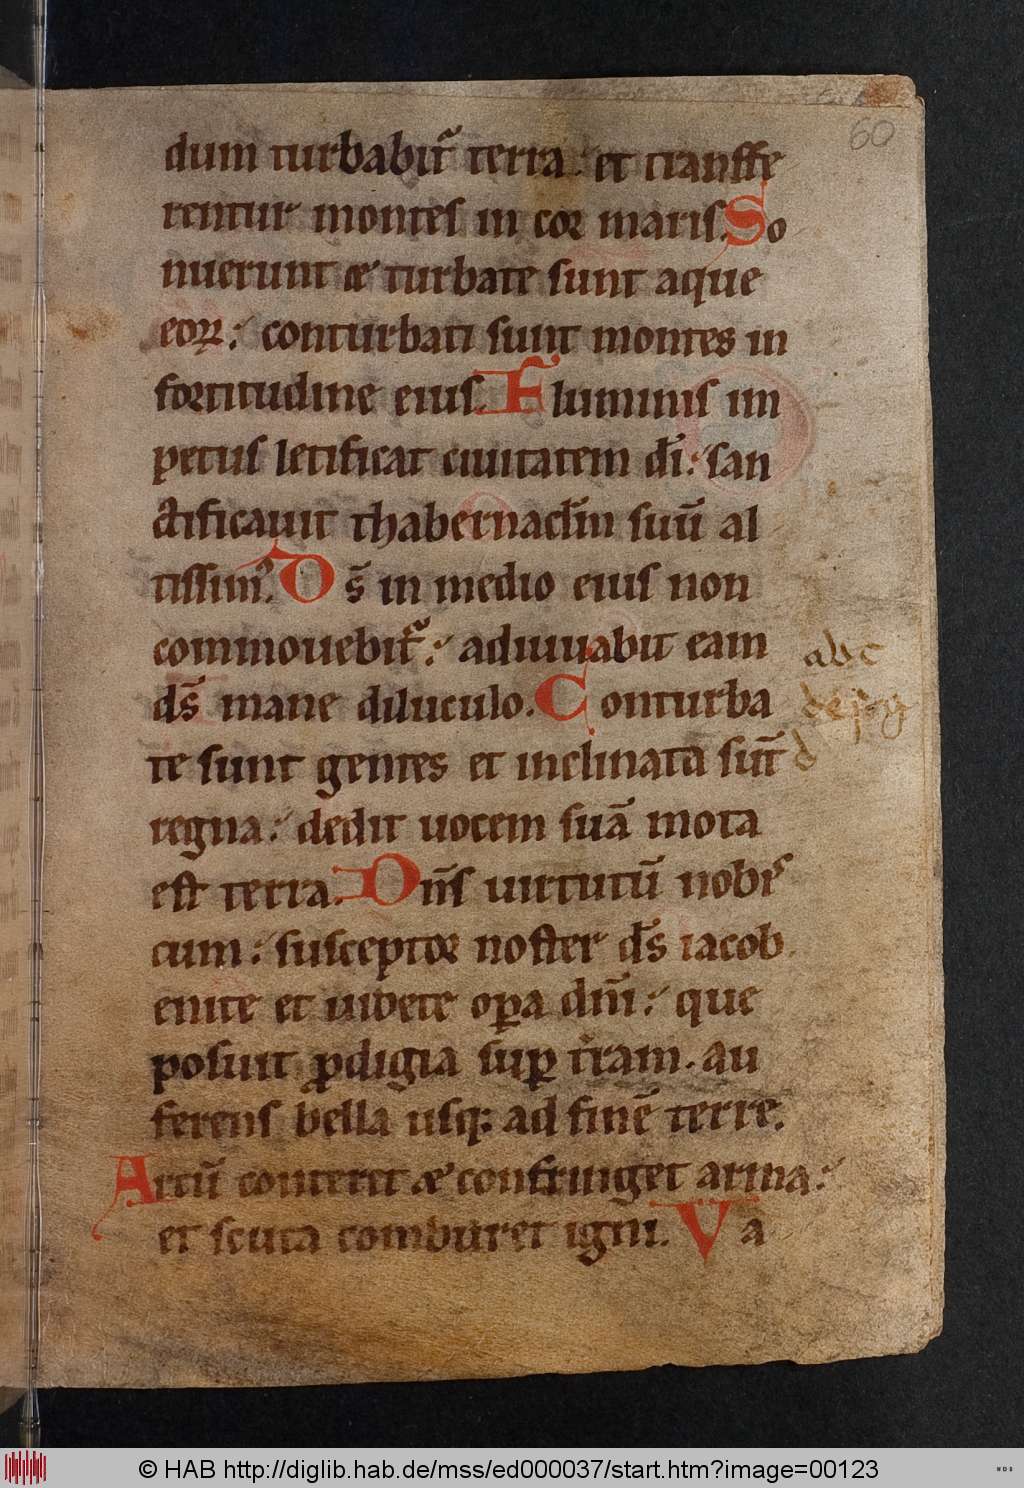 60
dum turbabit᷑ terra : et tranſfe
rentur montes in cor maris. So
nuerunt æ turbate ſunt aque
eoꝝ : conturbati ſunt montes in
fortitudine eiuſ. Fluminiſ im
petuſ letificat ciuitatem dī : ſan
ctificauit thabernaclm̄ ſuū al
tiſſimꝰ. Ds̄ in medio eiuſ non
commouebit᷑ : adiuuabit eam
ds̄ mane diluculo. Conturba
te ſunt gentes et inclinata ſūt
regna : dedit uocem ſuā mota
eſt terra. Dn̄ſ uirtutū nobiſ
cum : ſuſceptor noſter ds̄ iacob
enite et uidete oꝑa dn̄i : que
poſuit ꝓdigia ſuꝑ t̄ram. au
ferenſ bella uſqꝫ ad finē terre.
Arcū conteret æ confringet arma :
et ſcuta comburet igni. Va
abc
defg
d
© HAB http://diglib.hab.de/mss/ed000037/start.htm?image=00123